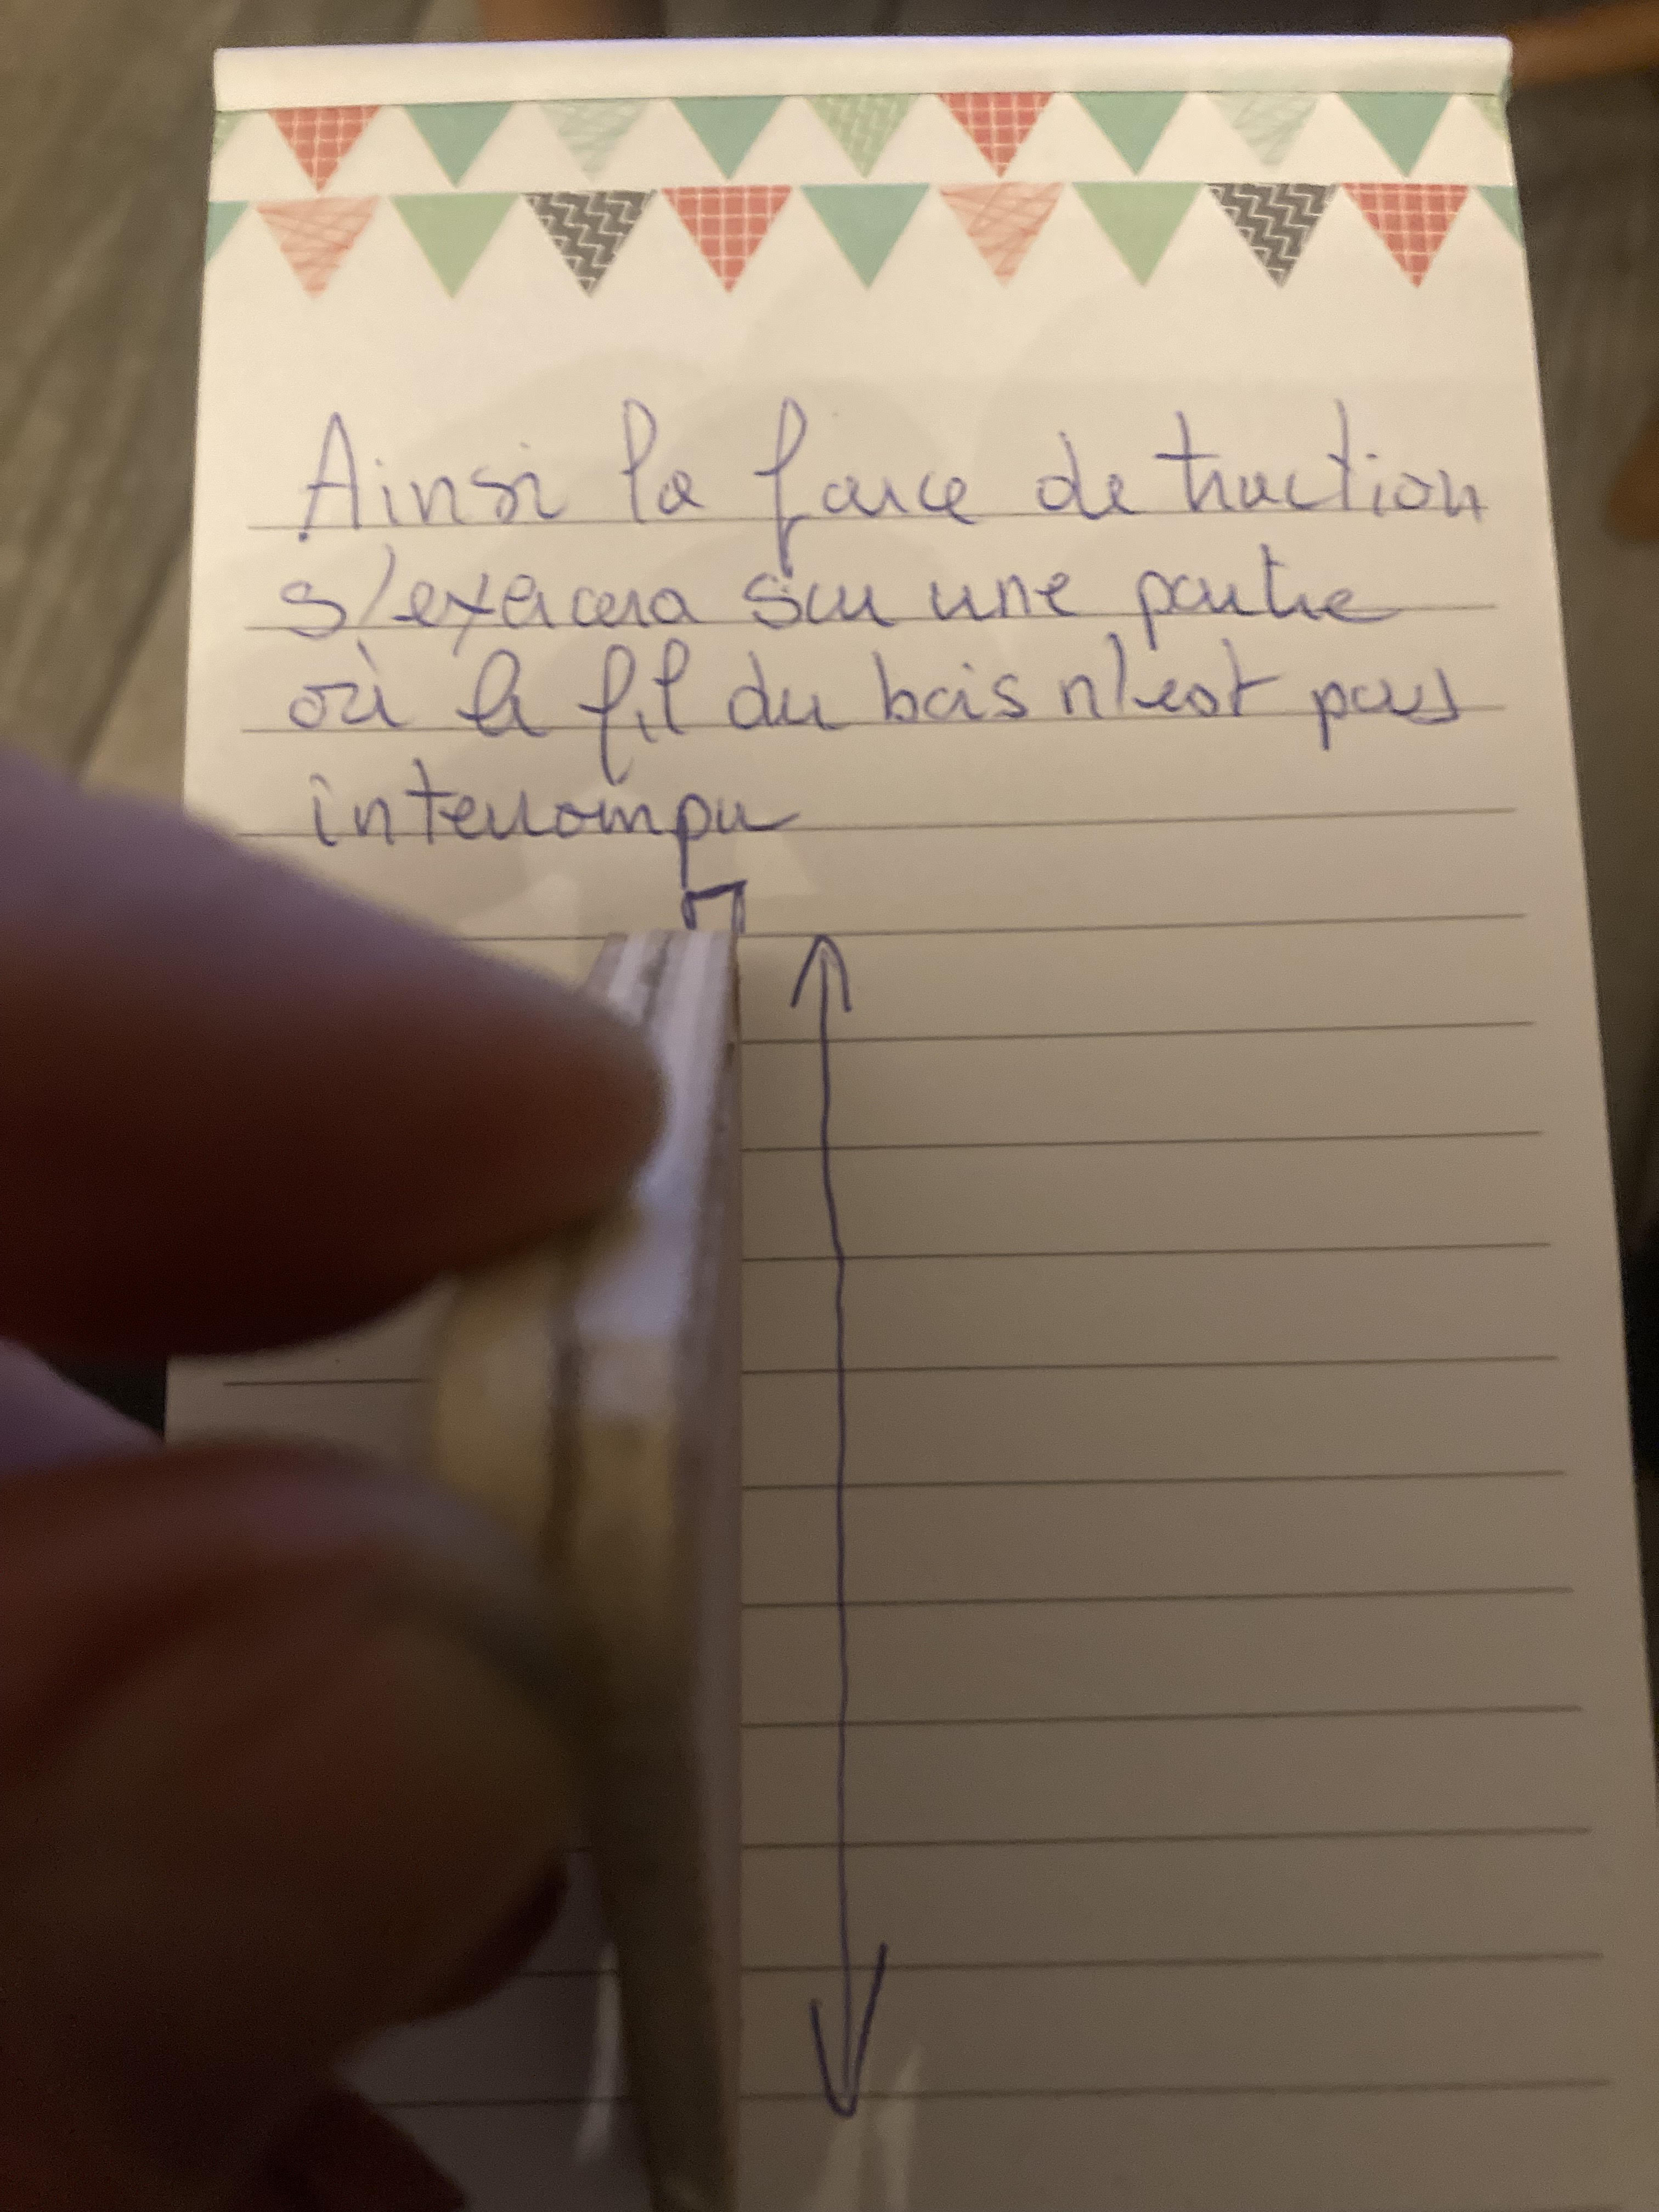 Ainsi la force de traction
s'exercera sur une partie
où le fil du bois n'est pas
interrompu